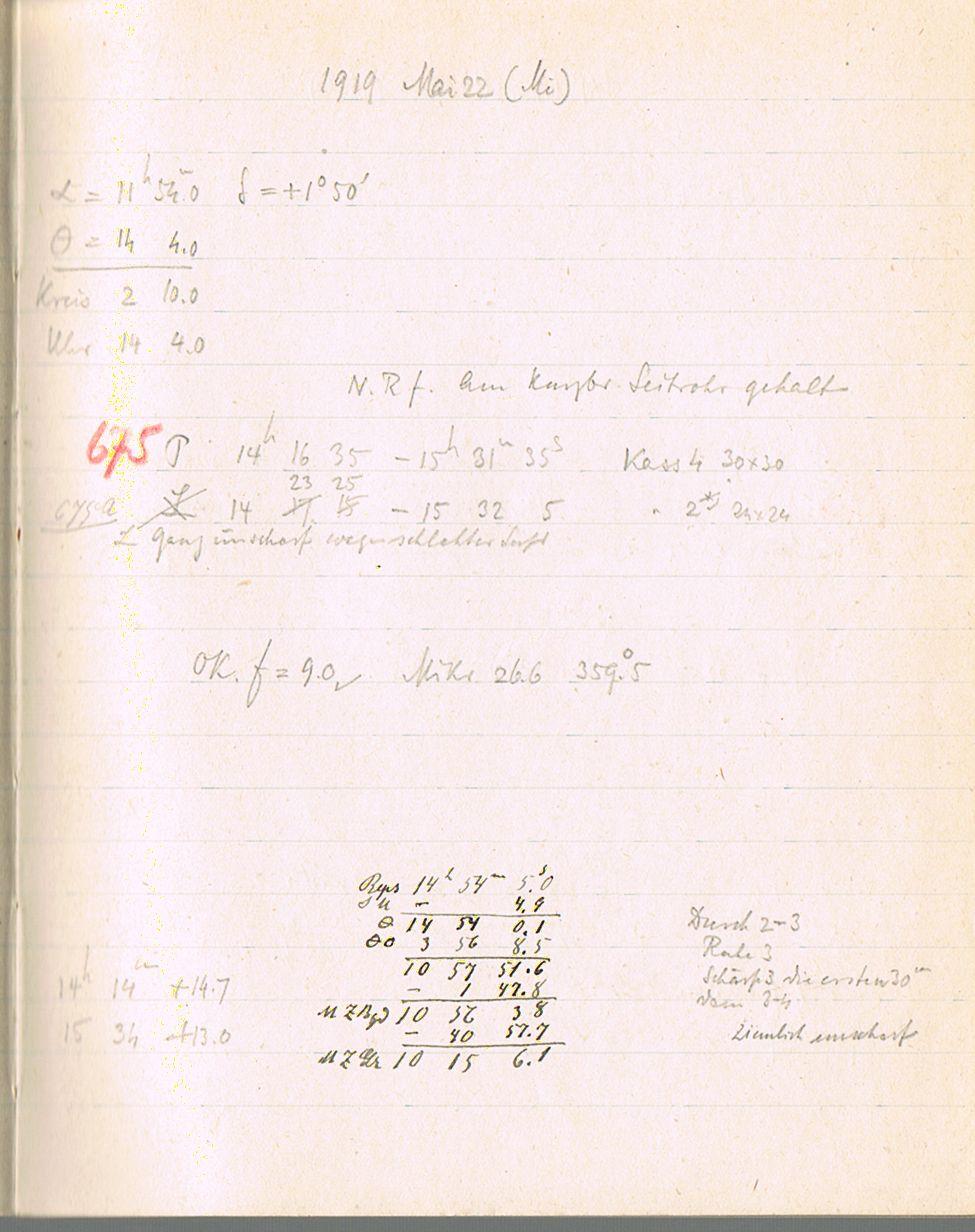 1919 Mai 22 (Mi)
α = 11ʰ 54ᵐ.0 δ = +1° 50'
θ = 14 4.0
Kreis 2 10.0
Uhr 14 4.0
N. R f. am Leitrohr gehalt
675 T 14ʰ 16 35 – 15ʰ 31ᵐ 35ˢ Kass 4 30×30
23 25
14 17 15 – 15 32 5 " 24×24
L ganz unscharf wegen schlechter Luft
OK. f = 9.0 Mikr 26.6 359°.5
14ʰ 54ᵐ 5ˢ.0
– 4.9
θ 14 54 0.1
θo 3 56 8.5
10 57 51.6
– 1 47.8
M Z Bgd 10 56 3.8
– 40 57.7
M Z Gr 10 15 6.1
14ʰ 14ᵐ +14.7
15 34 +13.0
Dursch 2-3
Ruhe 3
Schärfe 3 die ersten 30ᵐ
dann 3-4
Ziemlich unscharf